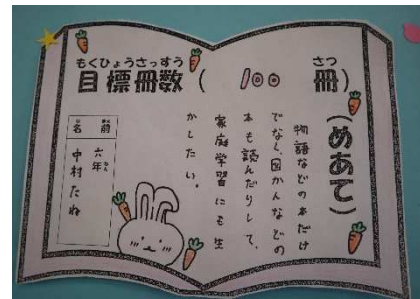 もくひょうさっすう さつ
目標冊数( 100 冊)
(めあて)
物語などの本だけ
でなく、図かんなどの
本も読んだりして、
家庭学習にも生
かしたい。
名前
六年
中村たね